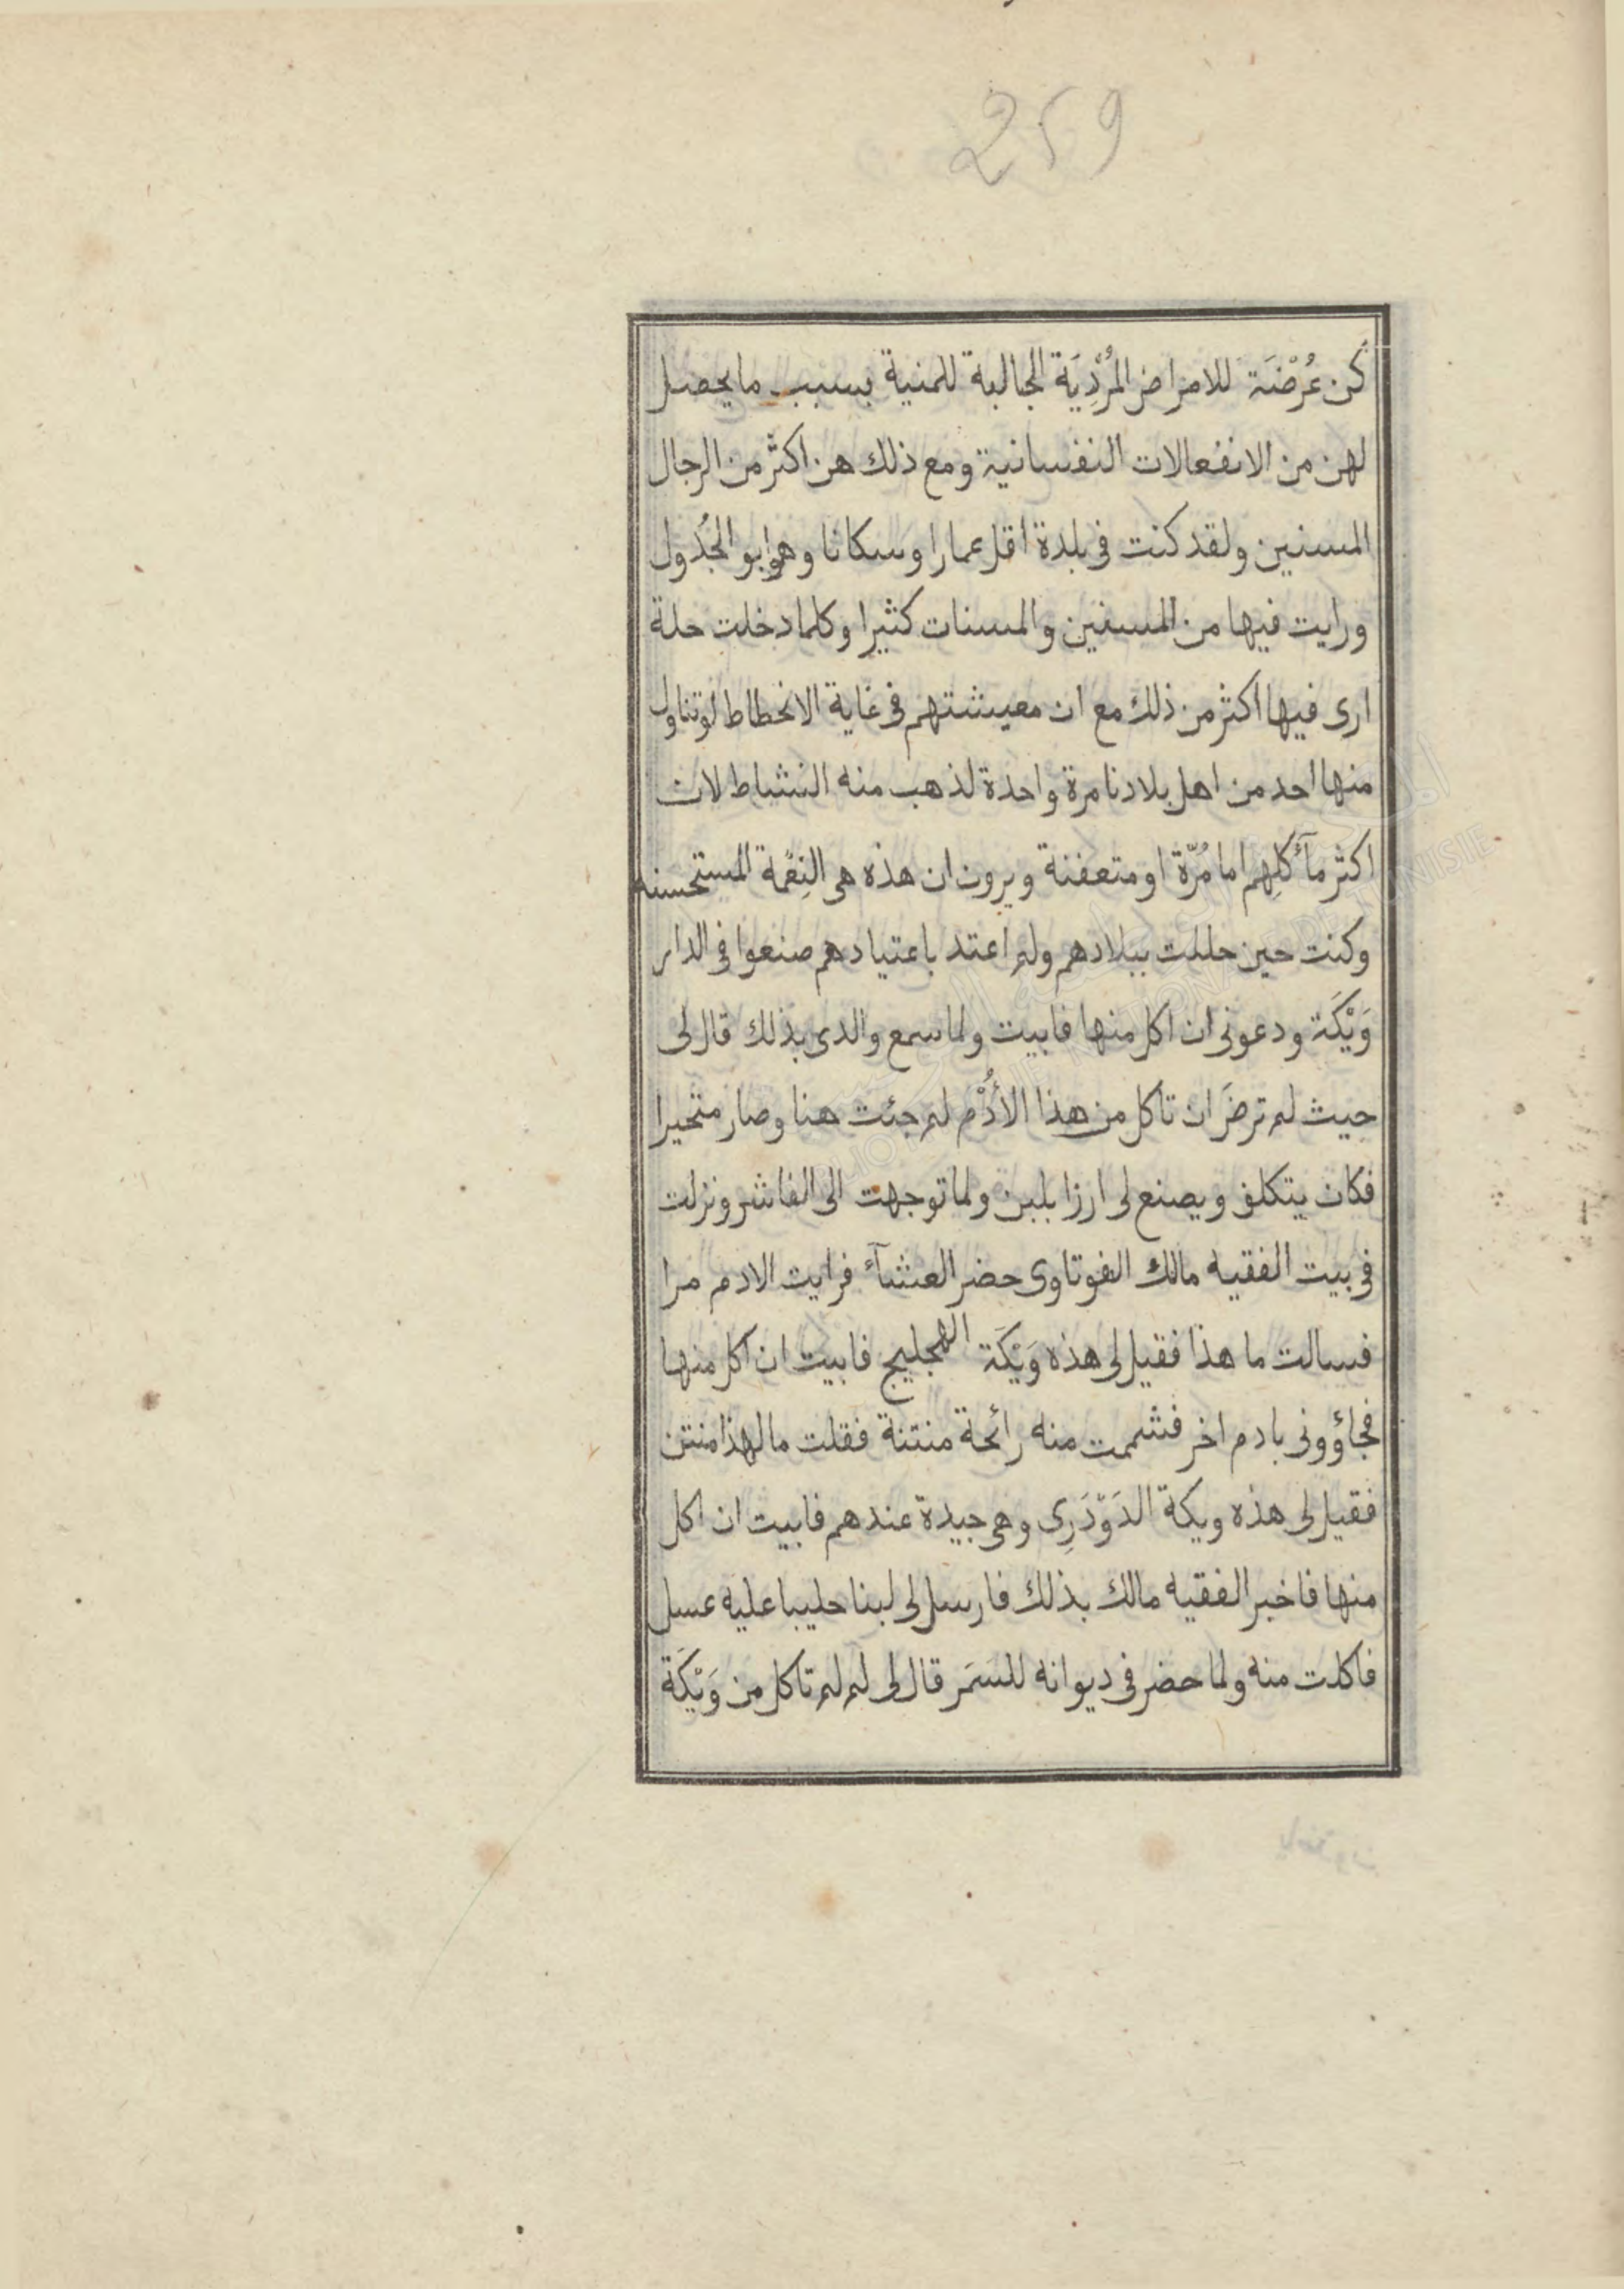 259
كن عُرْضَة للامراض المُرْدِيَة الجالبة للمنية بسبب ما يحصل
لهن من الانفعالات النفسانية ومع ذلك هن اكثر من الرجال
المسنين ولقد كنت فى بلدة اقل عمارا وسكانا وهو ابو الجُدُول
ورايت فيها من المسنين والمسنات كثيرا وكلما دخلت حلة
ارى فيها اكثر من ذلك مع ان معيشتهم فى غاية الانحطاط لو تناول
منها احد من اهل بلادنا مرة واحدة لذهب منه النشاط لان
اكثر مآكلِهم اما مُرّة او متعفنة ويرون ان هذه هى النِعْمة المستحسنه
وكنت حين حللت ببلادهم ولم اعتد باعتيادهم صنعوا فى الدار
وَيْكَة ودعونى ان اكل منها فابيت ولما سمع والدى بذلك قال لى
حيث لم ترضَ ان تاكل من هذا الأُدْم لم جئت هنا وصار متحيرا
فكان يتكلف ويصنع لى ارزا بلبن ولما توجهت الى الفاشر ونزلت
فى بيت الفقيه مالك الفوتاوى حضر العشآء فرايت الادم مرا
فسالت ما هذا فقيل لى هذه وَيْكَة الهجليج فابيت ان اكل منها
فجاؤونى بادم اخر فشممت منه رائحة منتنة فقلت ما لهذا منتن
فقيل لى هذه ويكة الدَوْدَرِى وهى جيدة عندهم فابيت ان اكل
منها فاخبر الفقيه مالك بذلك فارسل لى لبنا حليبا عليه عسل
فاكلت منه ولما حضر فى ديوانه للسَمَر قال لى لم لم تاكل من وَيْكَة